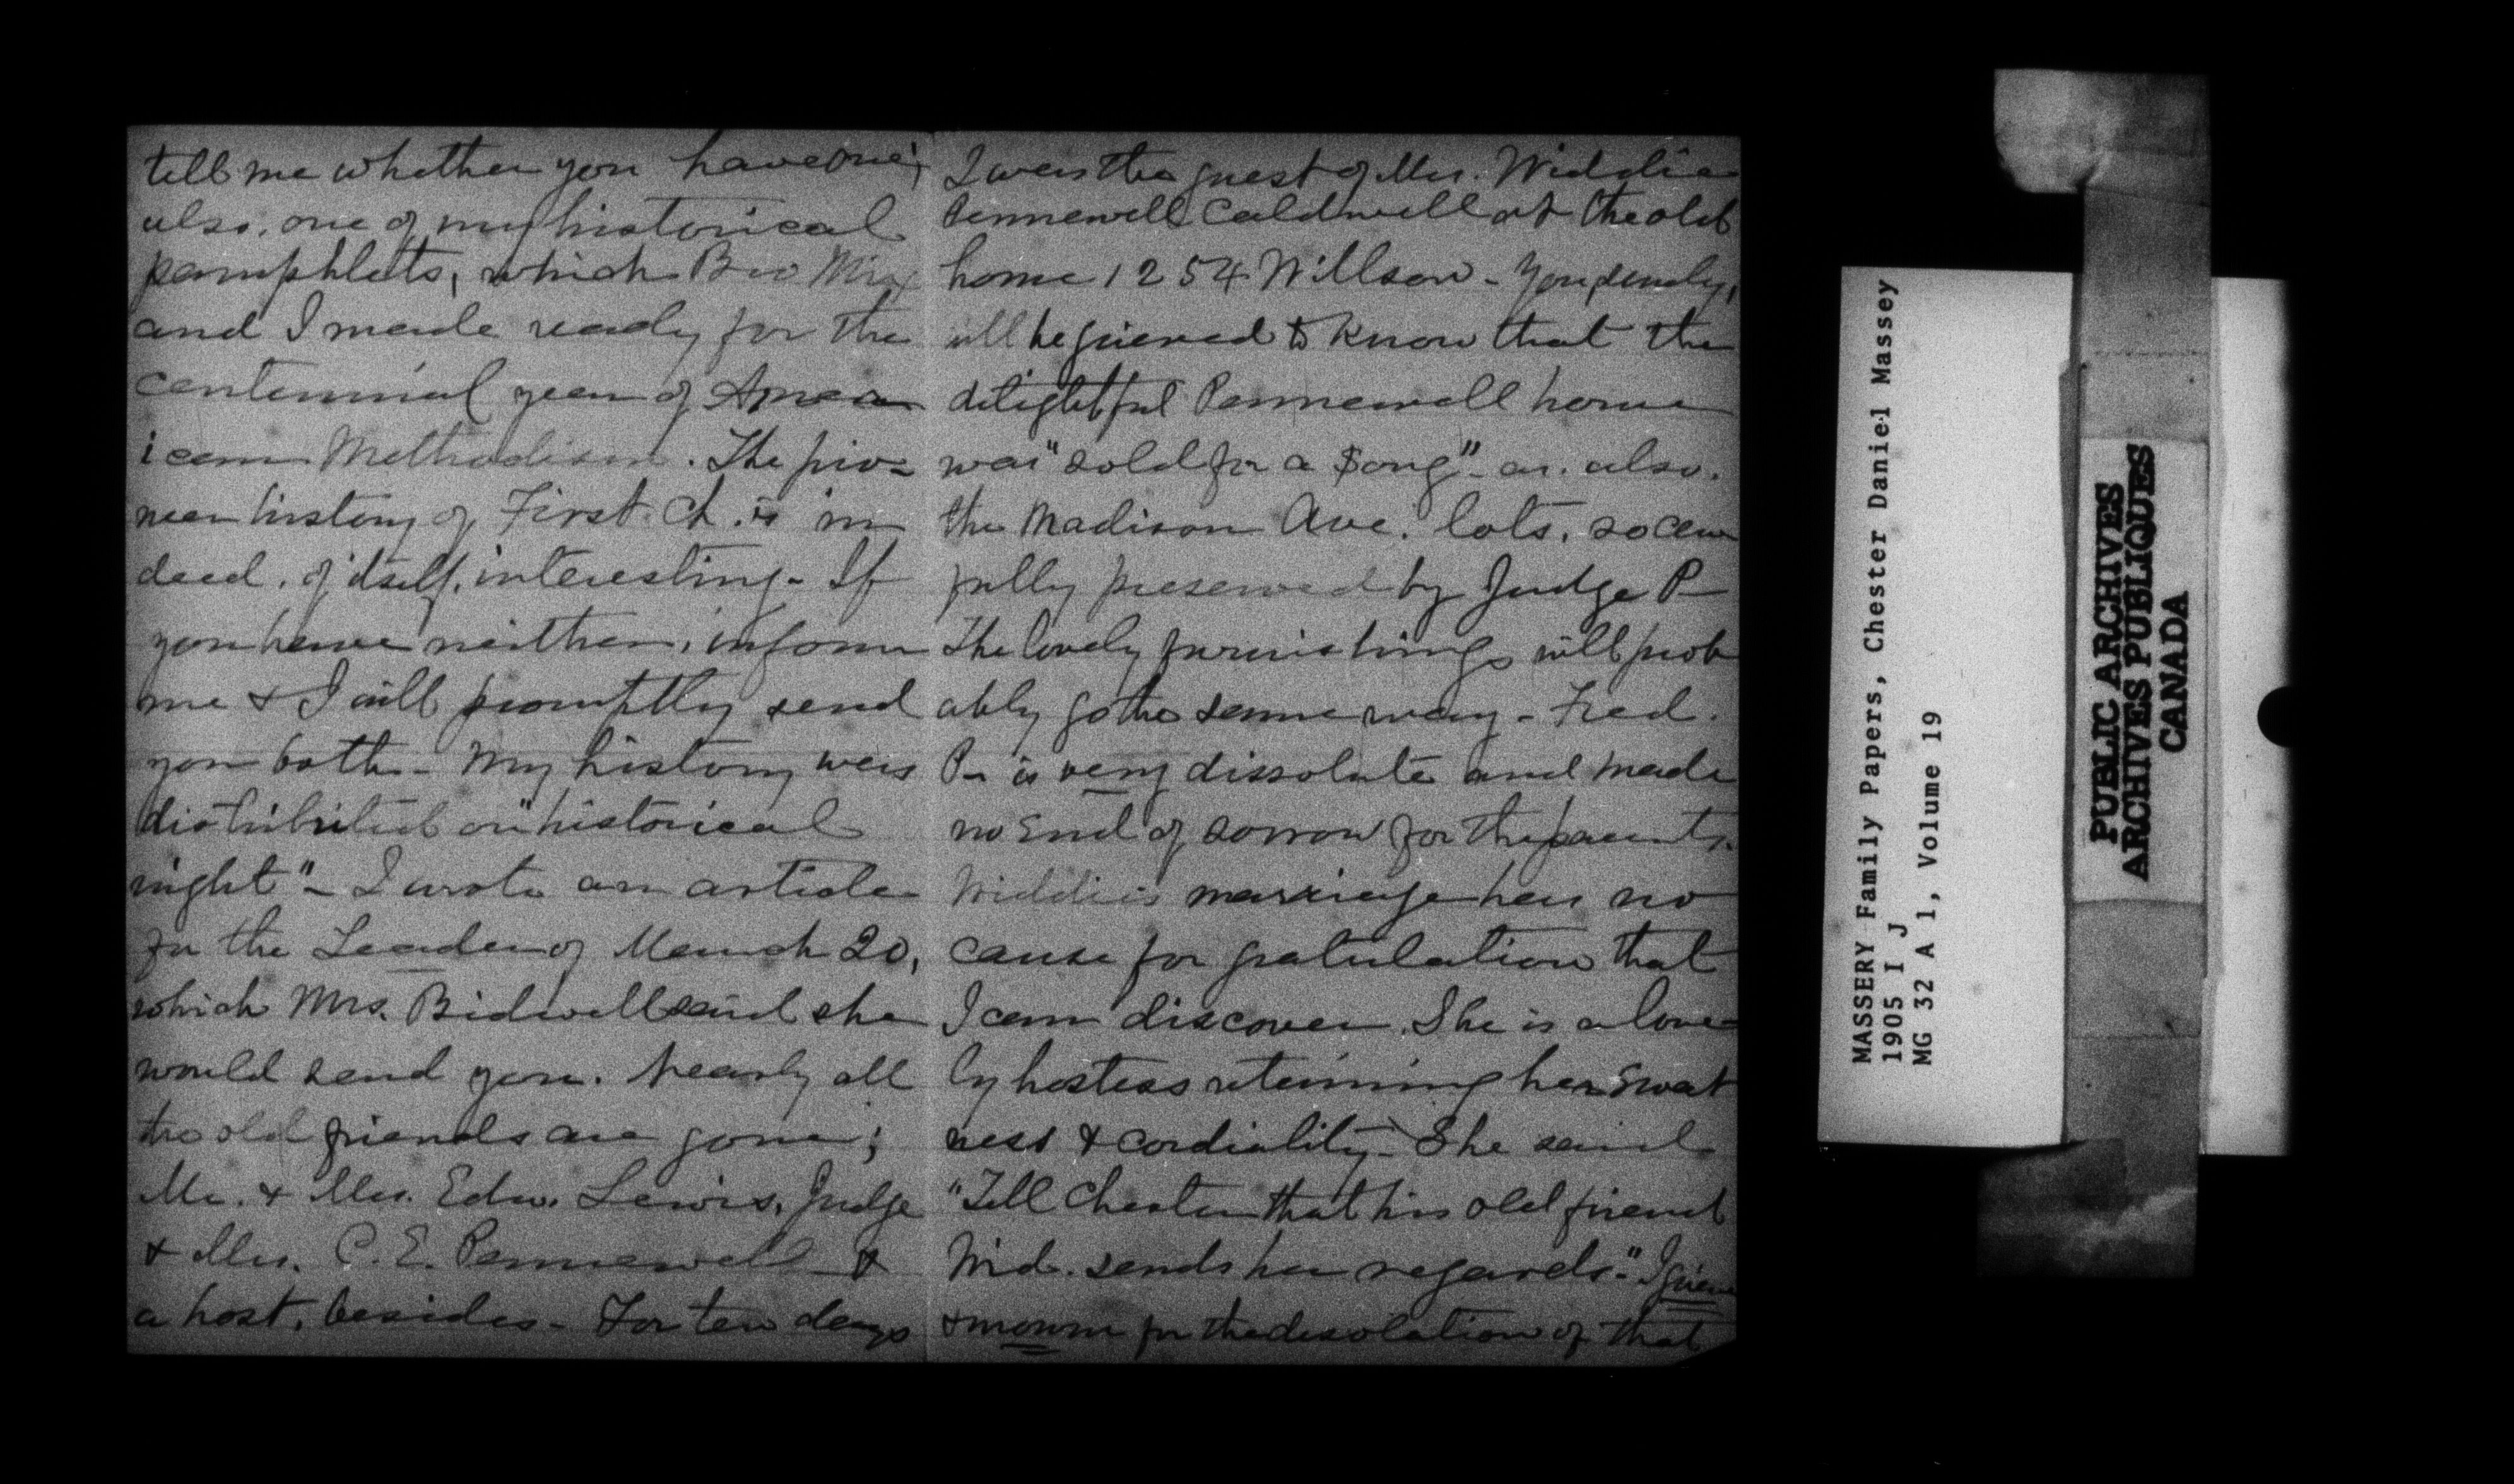 tell me whether you have one;
also, one of my historical
pamphlets, which Bro Mix
and I made ready for the
centennial year of Amer
ican Methodism. The pio-
neer history of First Ch. is in
deed, of itself, interesting - If
you have neither, inform
me & I will promptly send
you both - My history was
distributed on "historical
night" - I wrote an article
for the Leader of March 20,
which Mrs. Bidwell said she
would send you. Nearly all
the old friends are gone;
Mr. & Mrs. Edw. Lewis, Judge
& Mrs. C. E. Pennewell &
a host, besides - For ten days
I was the guest of Mrs. Widdie
Pennewell Caldwell at the old
home 1254 Willson - You, surely,
will be grieved to know that the
delightful Pennewell home
was "sold for a song" - as. also.
the Madison Ave. lots, so care
fully preserved by Judge P-
The lovely furnishings will prob
ably go the same way - Fred.
P- is very dissolute and made
no end of sorrow for the parents.
Widdie's marriage has no
cause for gratulation that
I can discover. She is a love-
ly hostess retaining her sweet
ness & cordiality - She said
"Tell Chester that his old friend
Wid. sends her regards." I grieve
& mourn for the desolation of that
MASSERY Family Papers, Chester Daniel Massey
1905 I J
MG 32 A 1, Volume 19
PUBLIC ARCHIVES
ARCHIVES PUBLIQUES
CANADA